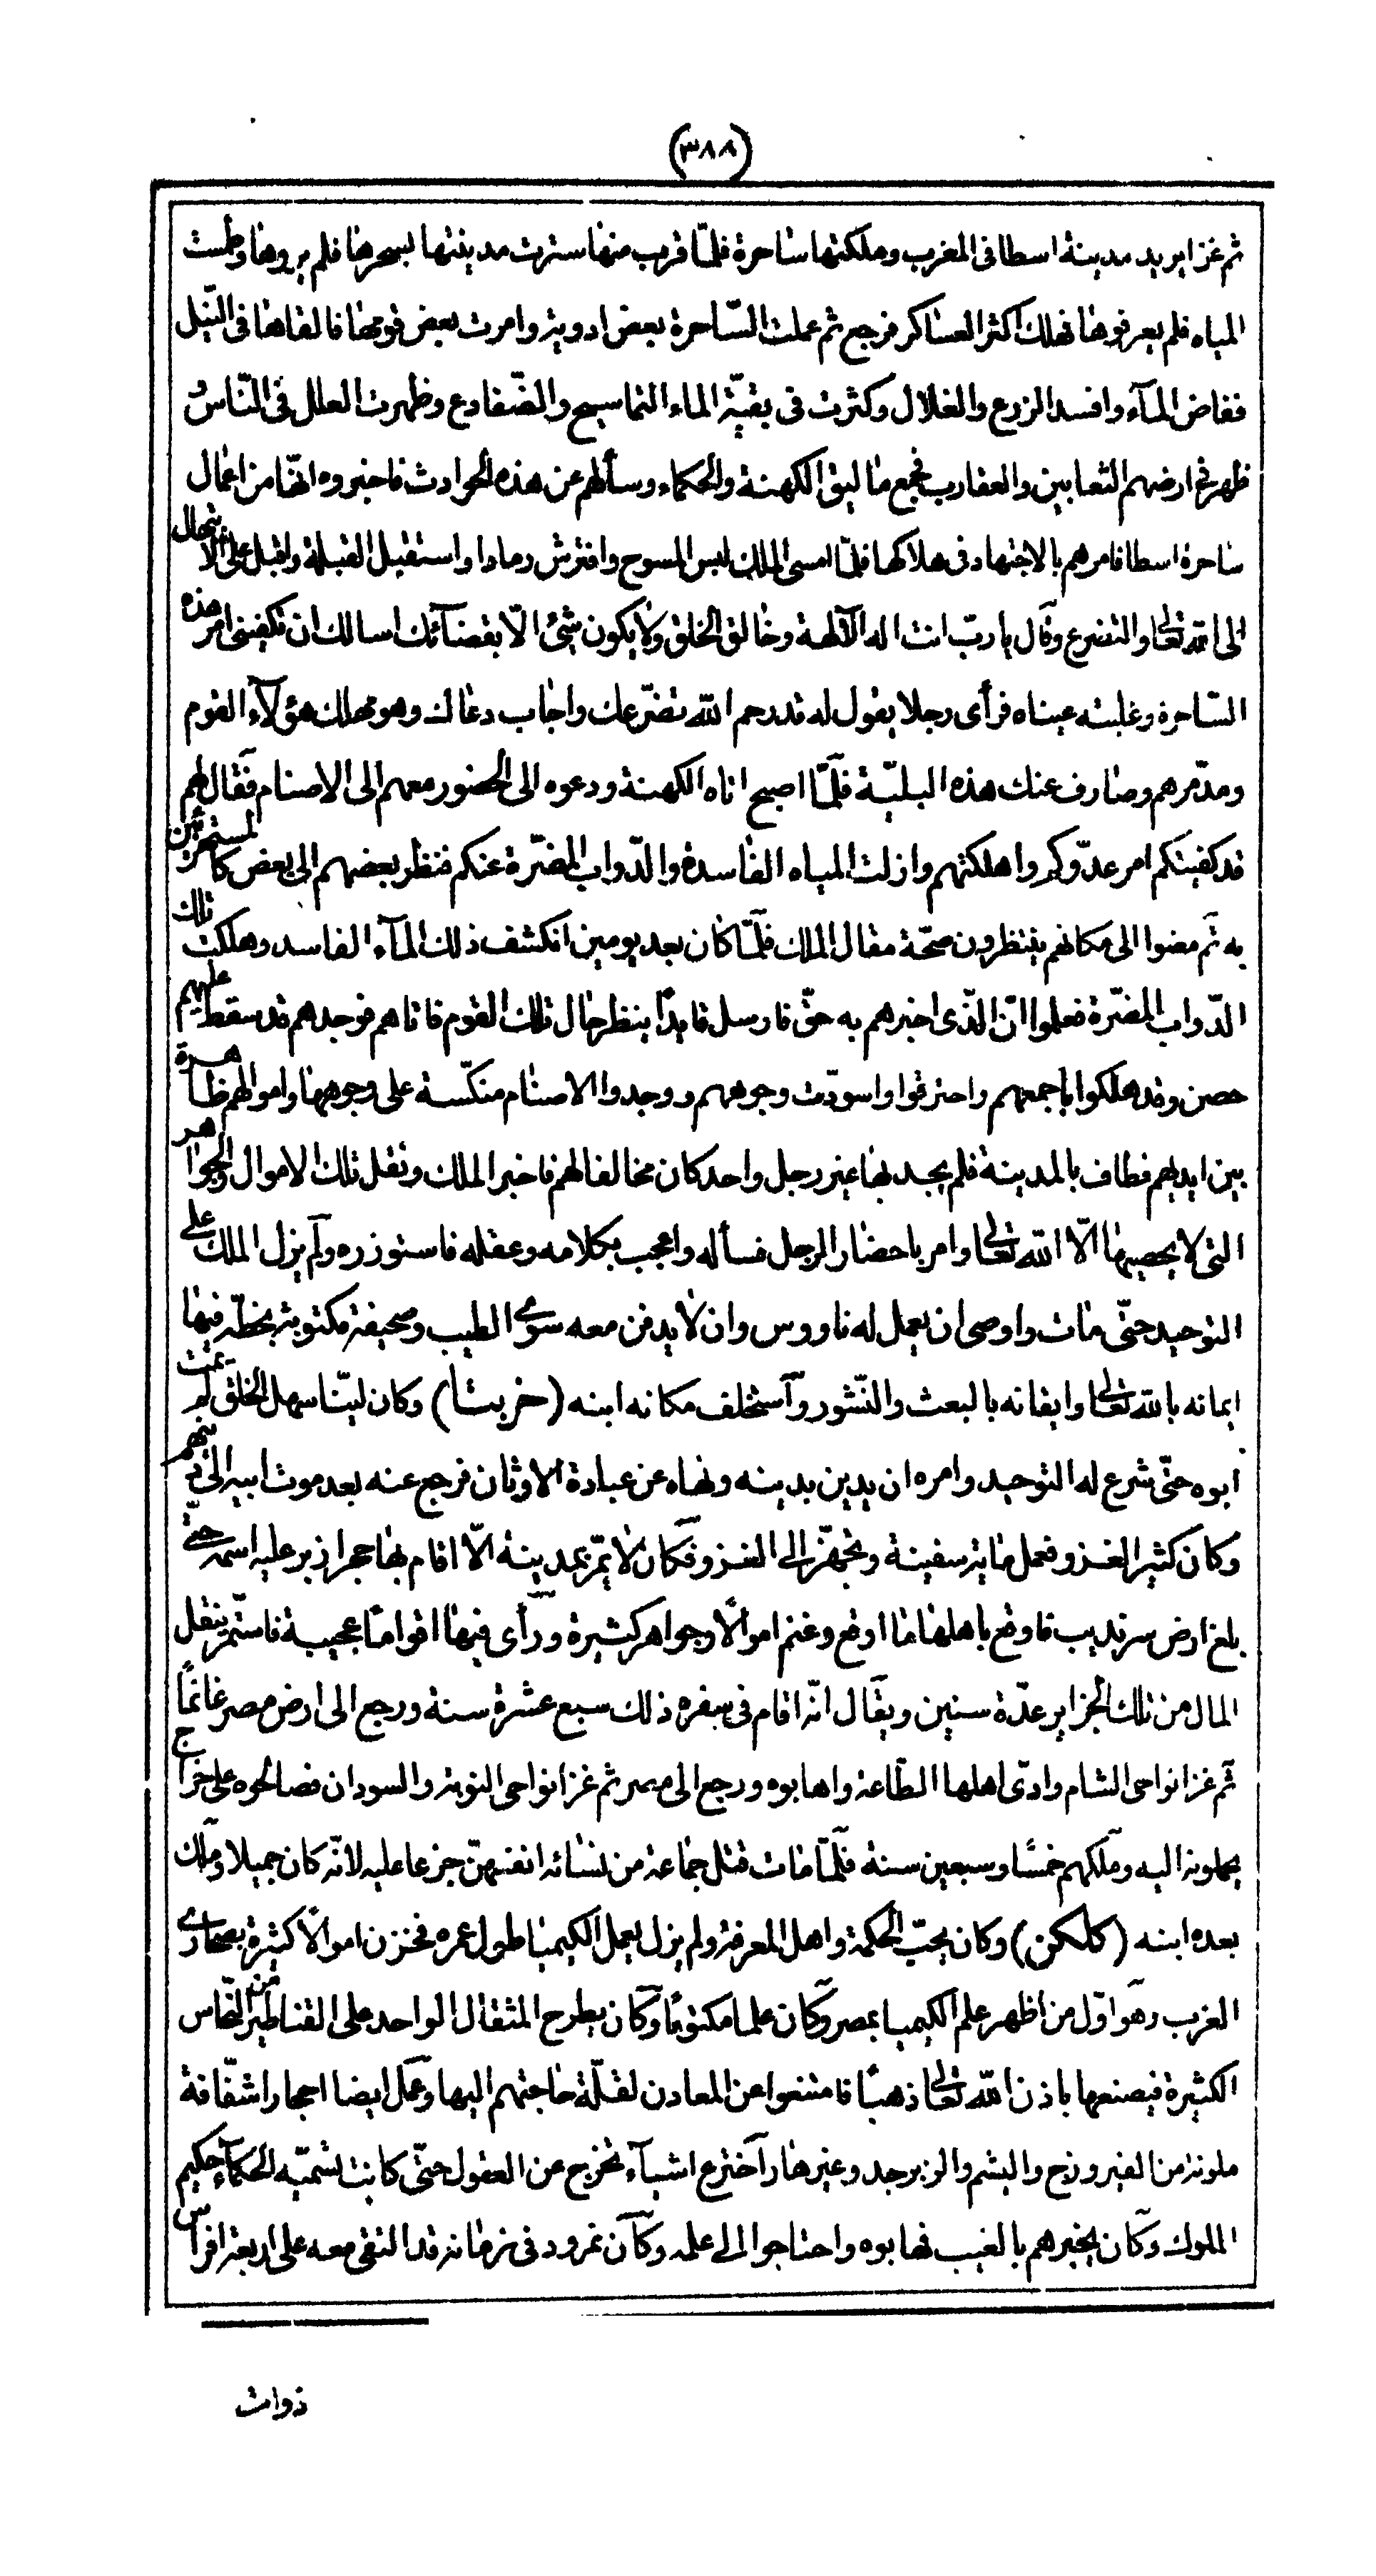 (٣٨٨)
ثم غزا يريد مدينة اسطا فى المغرب وملكتها ساحرة فلمّا قرب منها سترت مدينتها بسحرها فلم يروها وطمست
المياه فلم يعرفوها فهلك اكثر العساكر فرجع ثم عملت السّاحرة بعض ادويته وامرت بعض قومها فالقاها فى النّيل
ففاض المآء وافسد الزرع والغلال وكثرت فى بقيّة الماء التماسيح والضّفادع وظهرت العلل فى النّاس
ظهر فى ارضهم الثعابين والعقارب فجمع ماليق الكهنة والحكماء وسألهم عن هذه الحوادث فاخبروه انّها من اعمال
ساحرة اسطا فامرهم بالاجتهاد فى هلاكها فلمّا امسى الملك لبس المسوح وافترش رمادا واستقبل القبلة واقبل على الابتهال
الى الله تعالى والتضرع وقال يا ربّ انت اله الآلهة وخالق الخلق ولا يكون شئ الّا بقضآئك اسالك ان تكفينى امر هذه
السّاحرة وغلبته عيناه فرأى رجلا يقول له قد رحم الله تضرّعك واجاب دعاك وهو مهلك هؤلآء القوم
ومدّمرهم وصارف عنك هذه البليّة فلمّا اصبح اتاه الكهنة ودعوه الى الحضور معهم الى الاصنام فقال لهم
قد كفيتكم امر عدّوكم واهلكتهم وازلت المياه الفاسدة والدّواب المضرّة عنكم فنظر بعضهم الى بعض كالمستهزئين
به ثم مضوا الى مكانهم ينتظرون صحّة مقال الملك فلمّا كان بعد يومين انكشف ذلك المآء الفاسد وهلكت تلك
الدّواب المضرّة فعلموا انّ الذّى اخبرهم به حقّ فارسل قايدًا ينظر حال تلك القوم فاتاهم فوجدهم قد سقط عليهم
حصن وقد هلكوا باجمعهم واحترقوا واسودّت وجوههم ووجدوا الاصنام منكّسة على وجوهها واموالهم ظاهرة
بين ايديهم فطاف بالمدينة فلم يجد بها غير رجل واحد كان مخالفا لهم فاخبر الملك ونقل تلك الاموال والجواهر
التى لا يحصيها الّا الله تعالى وامر باحضار الرجل فسأله واعجب بكلامه وعقله فاستوزره ولم يزل الملك على
التوحيد حتّى مات واوصى ان يعمل له ناووس وان لا يدفن معه سوى الطيب وصحيفة مكتوبة بخطّه فيها
ايمانه بالله تعالى وايقانه بالبعث والنّشور واستخلف مكانه ابنه (خربتا) وكان ليّنا سهل الخلق لم يمت
ابوه حتّى شرع له التوحيد وامره ان يدين بدينه ونهاه عن عبادة الاوثان فرجع عنه بعد موت ابيه الى دينهم
وكان كثير الغزو فعمل مائة سفينة وتجهّز الى الغزو فكان لا يمرّ بمدينة الّا اقام بها حجرا زبر عليه اسمه حتّى
بلغ ارض سرنديب فاوقع باهلها ما اوقع وغنم اموالًا وجواهر كثيرة ورأى فيها اقوامًا عجيبة فاستمّر ينقل
المال من تلك الجزاير عدّة سنين ويقال انّه اقام فى سفره ذلك سبع عشرة سنة ورجع الى ارض مصر غانمًا
ثم غزا نواحى الشام وادّى اهلها الطّاعة واهابوه ورجع الى مصر ثم غزا نواحى النوبة والسودان فصالحوه على خراج
يحملونه اليه وملكهم خمسًا وسبعين سنة فلمّا مات قتل جماعة من نسائه انفسهنّ جزعا عليه لانّه كان جميلا وملك
بعده ابنه (كلكن) وكان يحبّ الحكمة واهل المعرفة ولم يزل يعمل الكيميا طول عمره فخزن اموالًا كثيرة بصحارى
الغرب وهو اوّل من اظهر علم الكيميا بمصر وكان علما مكتومًا وكان يطرح المثقال الواحد على القناطير من النّحاس
الكثيرة فيصنعها باذن الله تعالى ذهبًا فامتنعوا عن المعادن لقلّة حاجتهم اليها وعمل ايضا احجارا شفّافة
ملونة من الفيروزج واليشم والزبرجد وغيرها واخترع اشيآء تخرج عن العقول حتّى كانت تسمّيه الحكمآء حكيم
الملوك وكان يخبرهم بالغيب فهابوه واحتاجوا الى علمه وكان نمرود فى زمانه قد التقى معه على اربعة افراس
ذوات